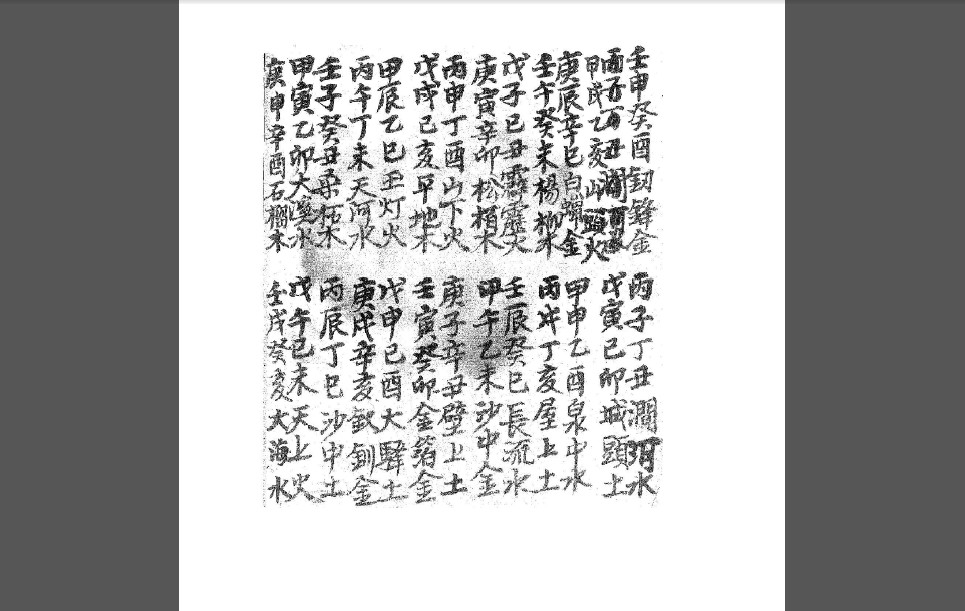 壬申癸酉釖鋒金
甲戌乙亥山頭火
庚辰辛巳白蠟金
壬午癸未楊柳木
戊子己丑霹靂火
庚寅辛卯松栢木
丙申丁酉山下火
戊戌己亥平地木
甲辰乙巳灯火
丙午丁未天河水
壬子癸丑桑柘木
甲寅乙卯大溪水
庚申辛酉石榴木
丙子丁丑澗河水
戊寅己卯城頭土
甲申乙酉泉中水
丙戌丁亥屋上土
壬辰癸巳長流水
甲午乙未沙中金
庚子辛丑壁上土
壬寅癸卯金箔金
戊申己酉大驛土
庚戌辛亥釵釧金
丙辰丁巳沙中土
戊午己未天上火
壬戌癸亥大海水